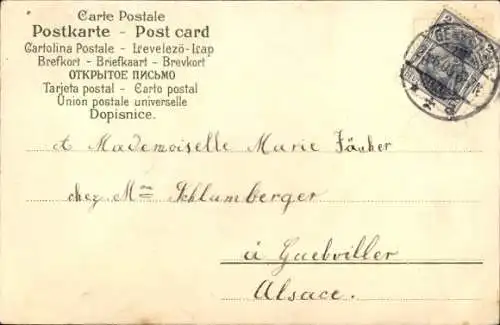 Carte Postale
Postkarte - Post card
Cartolina Postale - Levelező-Lap
Brefkort - Briefkaart - Brevkort
ОТКРЫТОЕ ПИСЬМО
Tarjeta postal - Carto postal
Union postale universelle
Dopisnice.
A Mademoiselle Marie Fäuher
chez Mme Schlumberger
à Guebviller
Alsace.